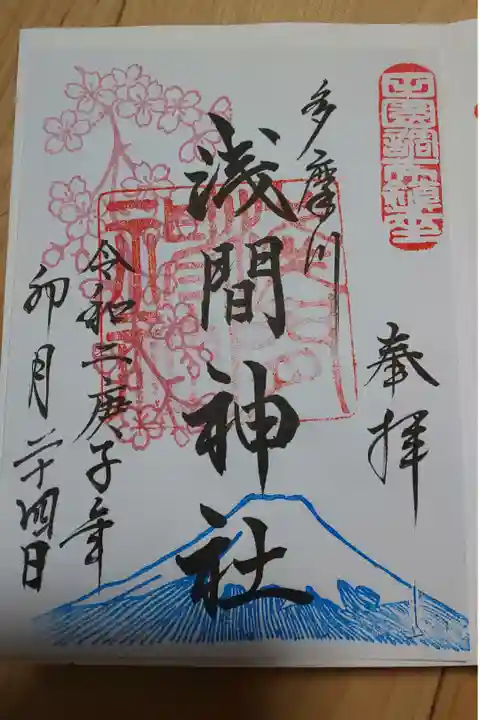 田園調布鎮座
奉拝
多摩川
浅間神社
令和二庚子年
卯月二十四日